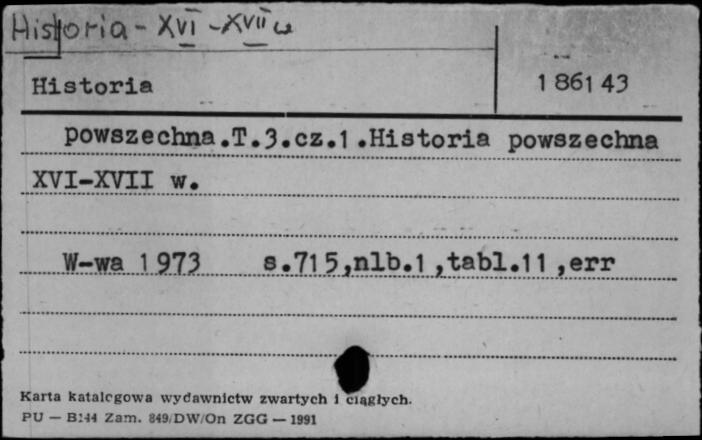 Historia - XVI - XVII w
Historia
186143
powszechna.T.3.cz.1.Historia powszechna
XVI-XVII w.
W-wa 1973 s.715,nlb.1,tabl.11,err
Karta katalogowa wydawnictw zwartych i ciągłych.
PU — B144 Zam. 849/DW/On ZGG — 1991